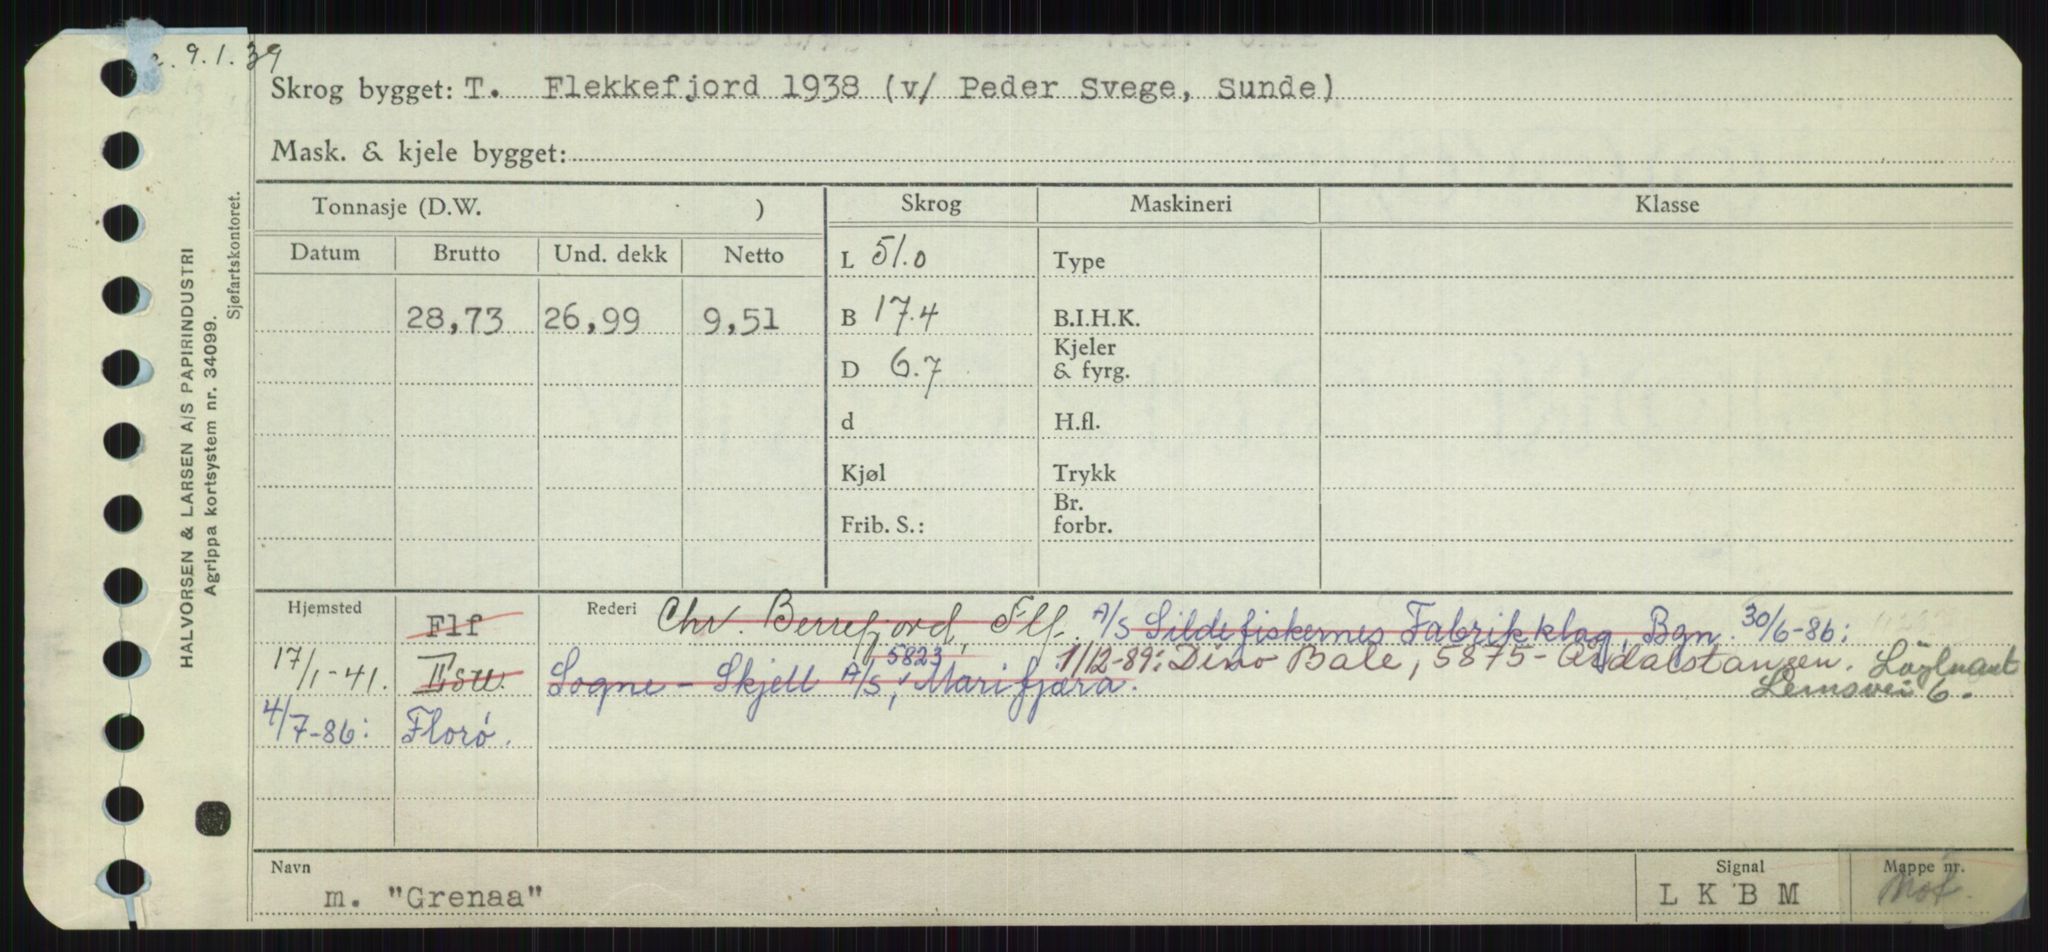 9.1.39
Skrog bygget: T. Flekkefjord 1938 (v/ Peder Svege, Sunde)
Mask. & kjele bygget:
Tonnasje (D.W. )
Skrog
Maskineri
Klasse
Datum
Brutto
Und. dekk
Netto
L 51.0
Type
28,73
26,99
9,51
B 17.4
B.I.H.K.
D 6.7
Kjeler
& fyrg.
d
H.fl.
Kjøl
Trykk
Frib. S.:
Br.
forbr.
Hjemsted
Flf
Rederi
Chr. Berrefjord, Flf. A/S Sildefiskernes Fabrikklag, Bgn. 30/6-86:
17/1-41.
Sogne - Skjell A/S, 5823 Marifjæra. 1/12-89: Dino Bale, 5875 - Årdalstangen.
6.
4/7-86:
Florø.
Navn
m. "Grenaa"
Signal
LKBM
Mappe nr.
Mot.
HALVORSEN & LARSEN A/S PAPIRINDUSTRI
Agrippa kortsystem nr. 34099.
Sjøfartskontoret.